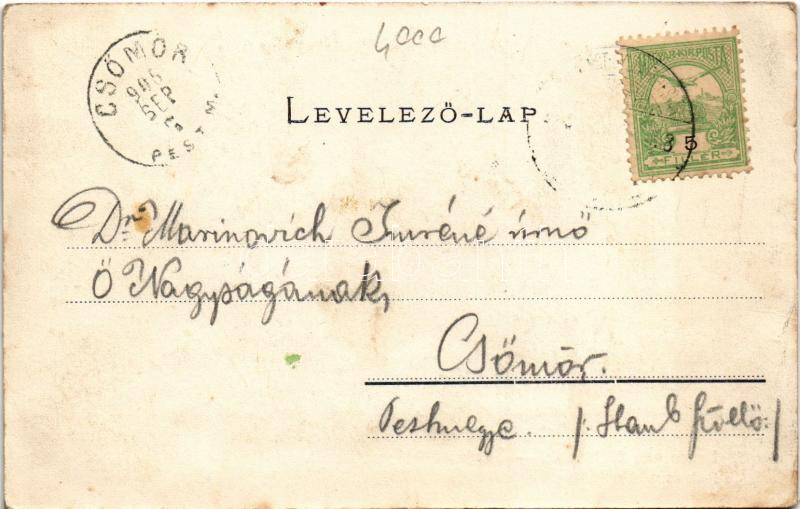 4000
CSÖMÖR
905 SEP
PEST M.
MAGYAR KIR. POSTA
5
FILLÉR
LEVELEZŐ-LAP
Dr. Marinovich Imréné úrnő
Ő Nagyságának,
Csömör.
Pestmegye. /: Staub szőllő :/